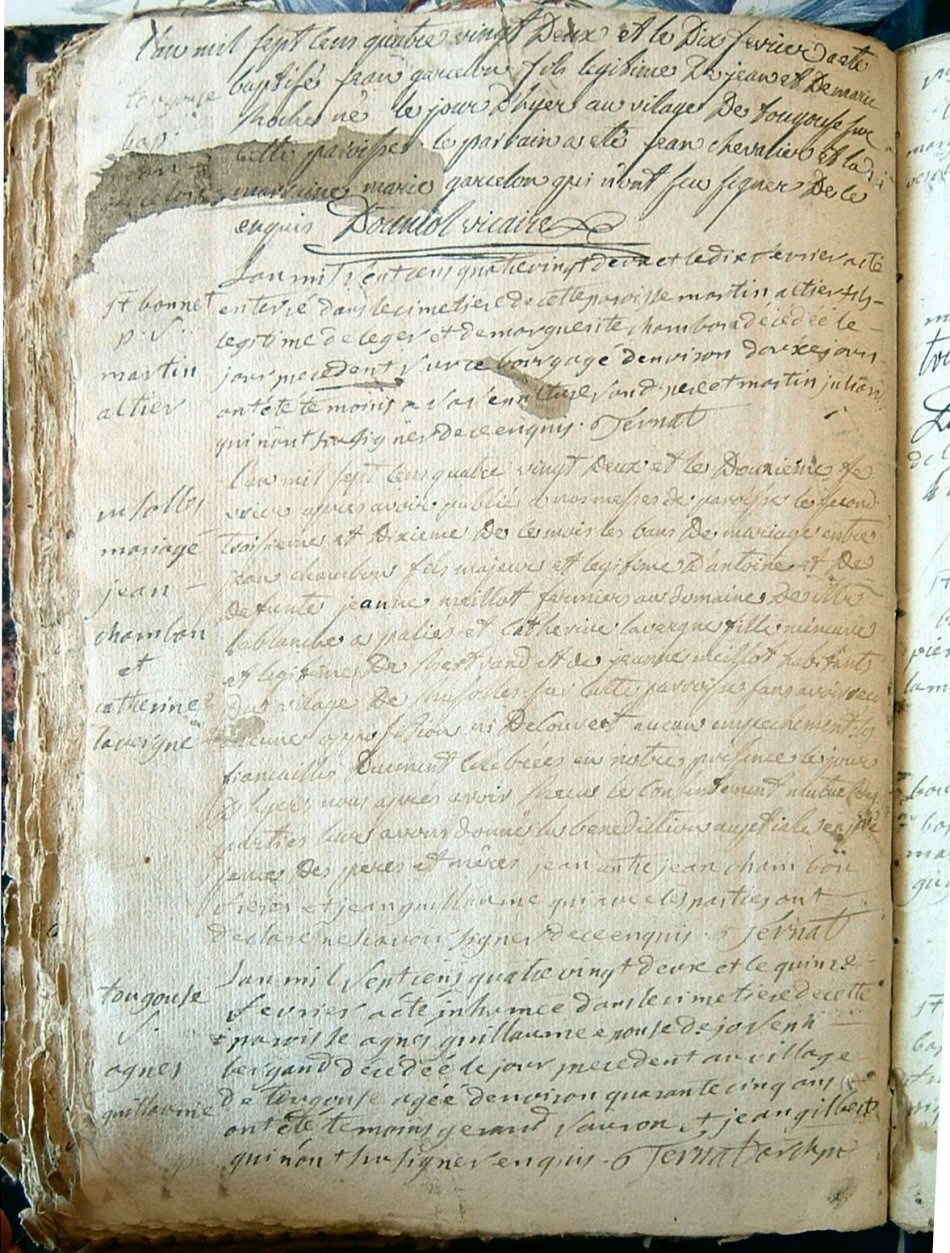 L'an mil sept cens quatre vingt Deux et le Dix fevrier a eté
tougouse
baptisé jean garcelon fils legitime De jean et De marie
né le jour D'hyer au village De tougouse sur
bap.
cette paroisse le parrain a eté jean chevalier et la
marraine marie garcelon qui n'ont sçu signer De ce
enquis Douniol vicaire
L'an mil sept cens quatre vingt deux et le dix fevrier a été
st bonnet
enterré dans le cimetiere de cette paroisse martin altier fils
p. s.
legitime de leger et de marguerite chambon decédé le
martin
jour precedent sur ce bourg agé denviron douze jours
altier
ont été temoins son pere et martin julien
qui n'ont sçu signer de ce enquis. Fernat
L'an mil sept cens quatre vingt Deux et le Douzieme fe
vrier apres avoir publiés a nos messes de paroisse le second
mariage
troisieme et Dixieme De ce mois les bans De mariage entre
jean
jean chambon fils majeur et legitime D'antoine et De
defunte jeanne meillot fermier au domaine De
chambon
lablanche a paliés et Catherine lavergne fille mineure
et
et legitime De Bertrand et de jeanne meillot habitants
catherine
Du village De sur cette parroisse sans avoir reçu
lavergne
aucune opposition ni Decouvert aucun empechement les
fiancailles Duement celebrées en notre presence le jour
D'hyer, nous apres avoir reçu le Consentement mutuel des
parties leur avons donné la benediction nuptiale en pré
sence Des peres et mères jean autre jean chambon
freres et jean guillaume qui avec les parties ont
declaré ne sçavoir signer de ce enquis. Fernat
L'an mil sept cens quatre vingt deux et le quinze
tougouse
fevrier a été inhumée dans le cimetiere de cette
s.
paroisse agnes guillaume epouse de joseph
agnes
bergand décédée le jour precedent au village
guillaume
de tougouse agée denviron quarante cinq ans
ont été temoins gerard sauron et jean gilbert
qui n'ont sçu signer enquis. Fernat